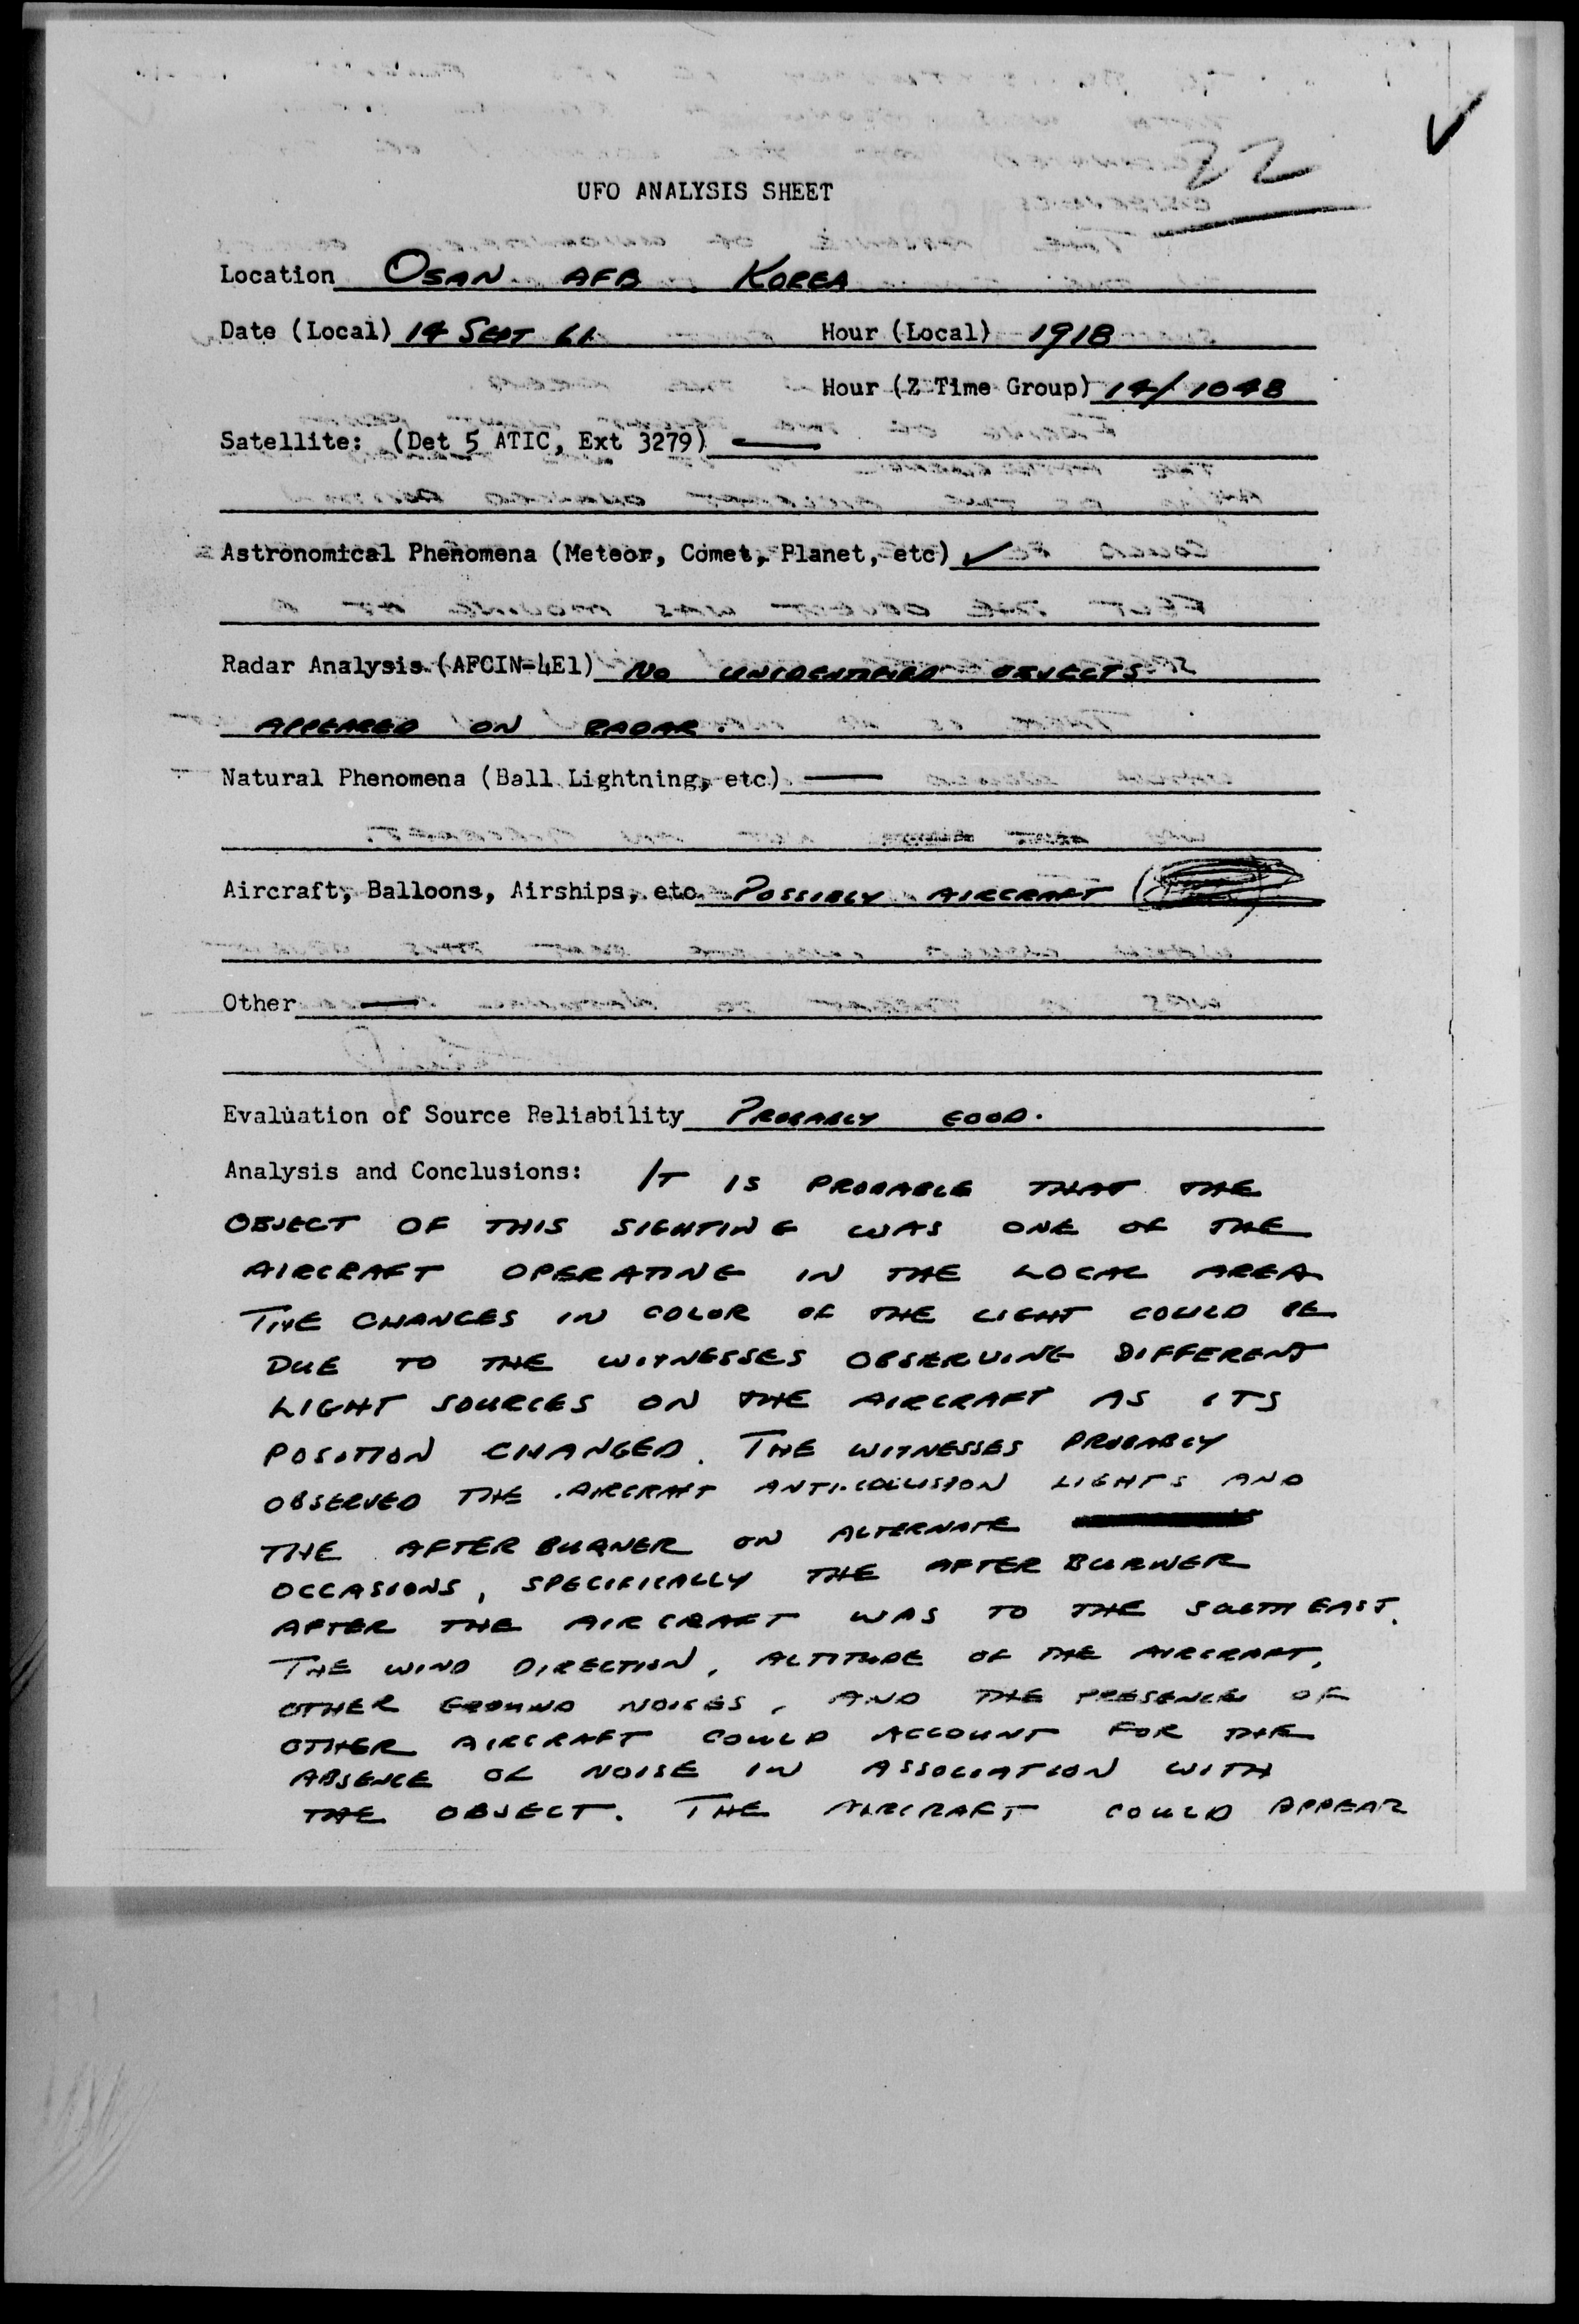 22
UFO ANALYSIS SHEET
Location OSAN AFB KOREA
Date (Local) 14 SEPT 61 Hour (Local) 1918
Hour (Z Time Group) 14/1048
Satellite: (Det 5 ATIC, Ext 3279) —
Astronomical Phenomena (Meteor, Comet, Planet, etc) ✓
Radar Analysis (AFCIN-4E1) NO UNIDENTIFIED OBJECTS
APPEARED ON RADAR.
Natural Phenomena (Ball Lightning, etc) —
Aircraft, Balloons, Airships, etc. POSSIBLY AIRCRAFT
Other —
Evaluation of Source Reliability PROBABLY GOOD.
Analysis and Conclusions: IT IS PROBABLE THAT THE
OBJECT OF THIS SIGHTING WAS ONE OF THE
AIRCRAFT OPERATING IN THE LOCAL AREA
THE CHANGES IN COLOR OF THE LIGHT COULD BE
DUE TO THE WITNESSES OBSERVING DIFFERENT
LIGHT SOURCES ON THE AIRCRAFT AS ITS
POSITION CHANGED. THE WITNESSES PROBABLY
OBSERVED THE AIRCRAFT ANTI-COLLISION LIGHTS AND
THE AFTER BURNER ON ALTERNATE
OCCASIONS, SPECIFICALLY THE AFTER BURNER
AFTER THE AIRCRAFT WAS TO THE SOUTH EAST.
THE WIND DIRECTION, ALTITUDE OF THE AIRCRAFT,
OTHER GROUND NOISES, AND THE PRESENCE OF
OTHER AIRCRAFT COULD ACCOUNT FOR THE
ABSENCE OF NOISE IN ASSOCIATION WITH
THE OBJECT. THE AIRCRAFT COULD APPEAR